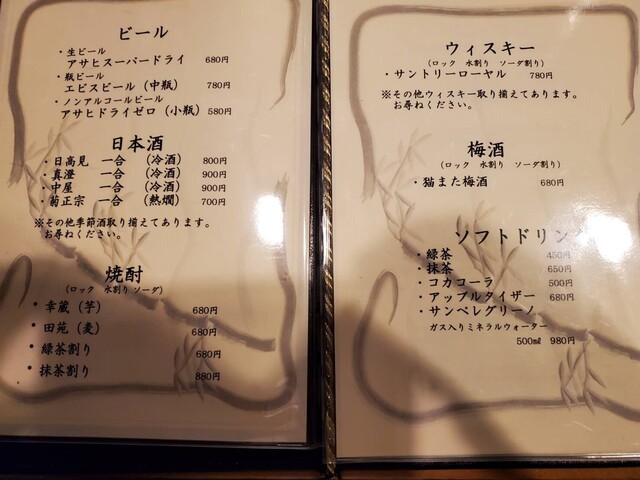 ビール
・生ビール
アサヒスーパードライ 680円
・瓶ビール
エビスビール（中瓶） 780円
・ノンアルコールビール
アサヒドライゼロ（小瓶） 580円
日本酒
・日高見 一合 （冷酒） 800円
・真澄 一合 （冷酒） 900円
・中屋 一合 （冷酒） 900円
・菊正宗 一合 （熱燗） 700円
※その他季節酒取り揃えてあります。
お尋ねください。
焼酎
（ロック 水割り ソーダ）
・幸蔵（芋） 680円
・田苑（麦） 680円
・緑茶割り 680円
・抹茶割り 880円
ウィスキー
（ロック 水割り ソーダ割り）
・サントリーローヤル 780円
※その他ウィスキー取り揃えてあります。
お尋ねください。
梅酒
（ロック 水割り ソーダ割り）
・猫また梅酒 680円
ソフトドリンク
・緑茶 450円
・抹茶 650円
・コカコーラ 500円
・アップルタイザー 680円
・サンペレグリーノ
ガス入りミネラルウォーター
500㎖ 980円